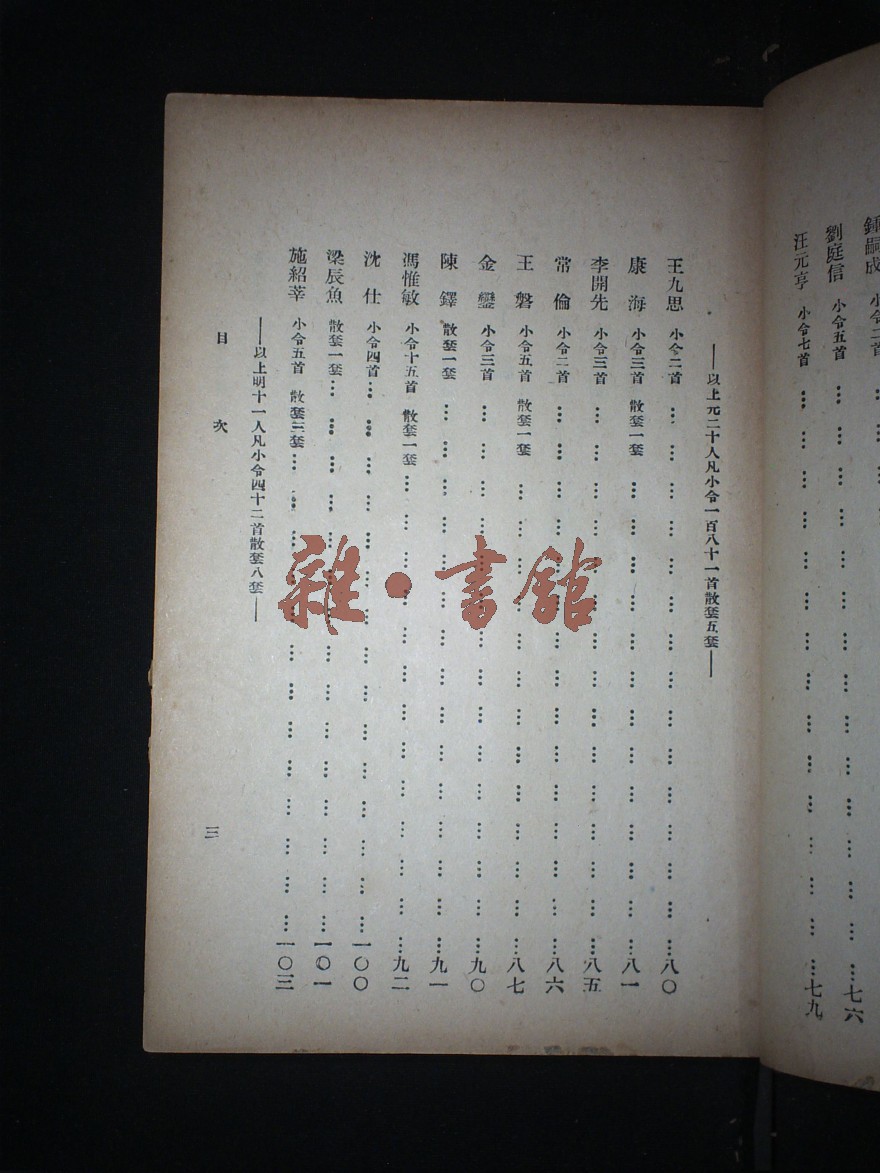 鍾嗣成 小令二首
劉庭信 小令五首 ……七六
汪元亨 小令七首 ……七九
——以上元二十人凡小令一百八十一首散套五套——
王九思 小令二首 ……八〇
康海 小令三首 散套一套 ……八一
李開先 小令三首 ……八五
常倫 小令二首 ……八六
王磐 小令五首 散套一套 ……八七
金鑾 小令三首 ……九〇
陳鐸 散套一套 ……九一
馮惟敏 小令十五首 散套一套 ……九二
沈仕 小令四首 ……一〇〇
梁辰魚 散套一套 ……一〇一
施紹莘 小令五首 散套三套 ……一〇三
——以上明十一人凡小令四十二首散套八套——
目次
三
雜·書館